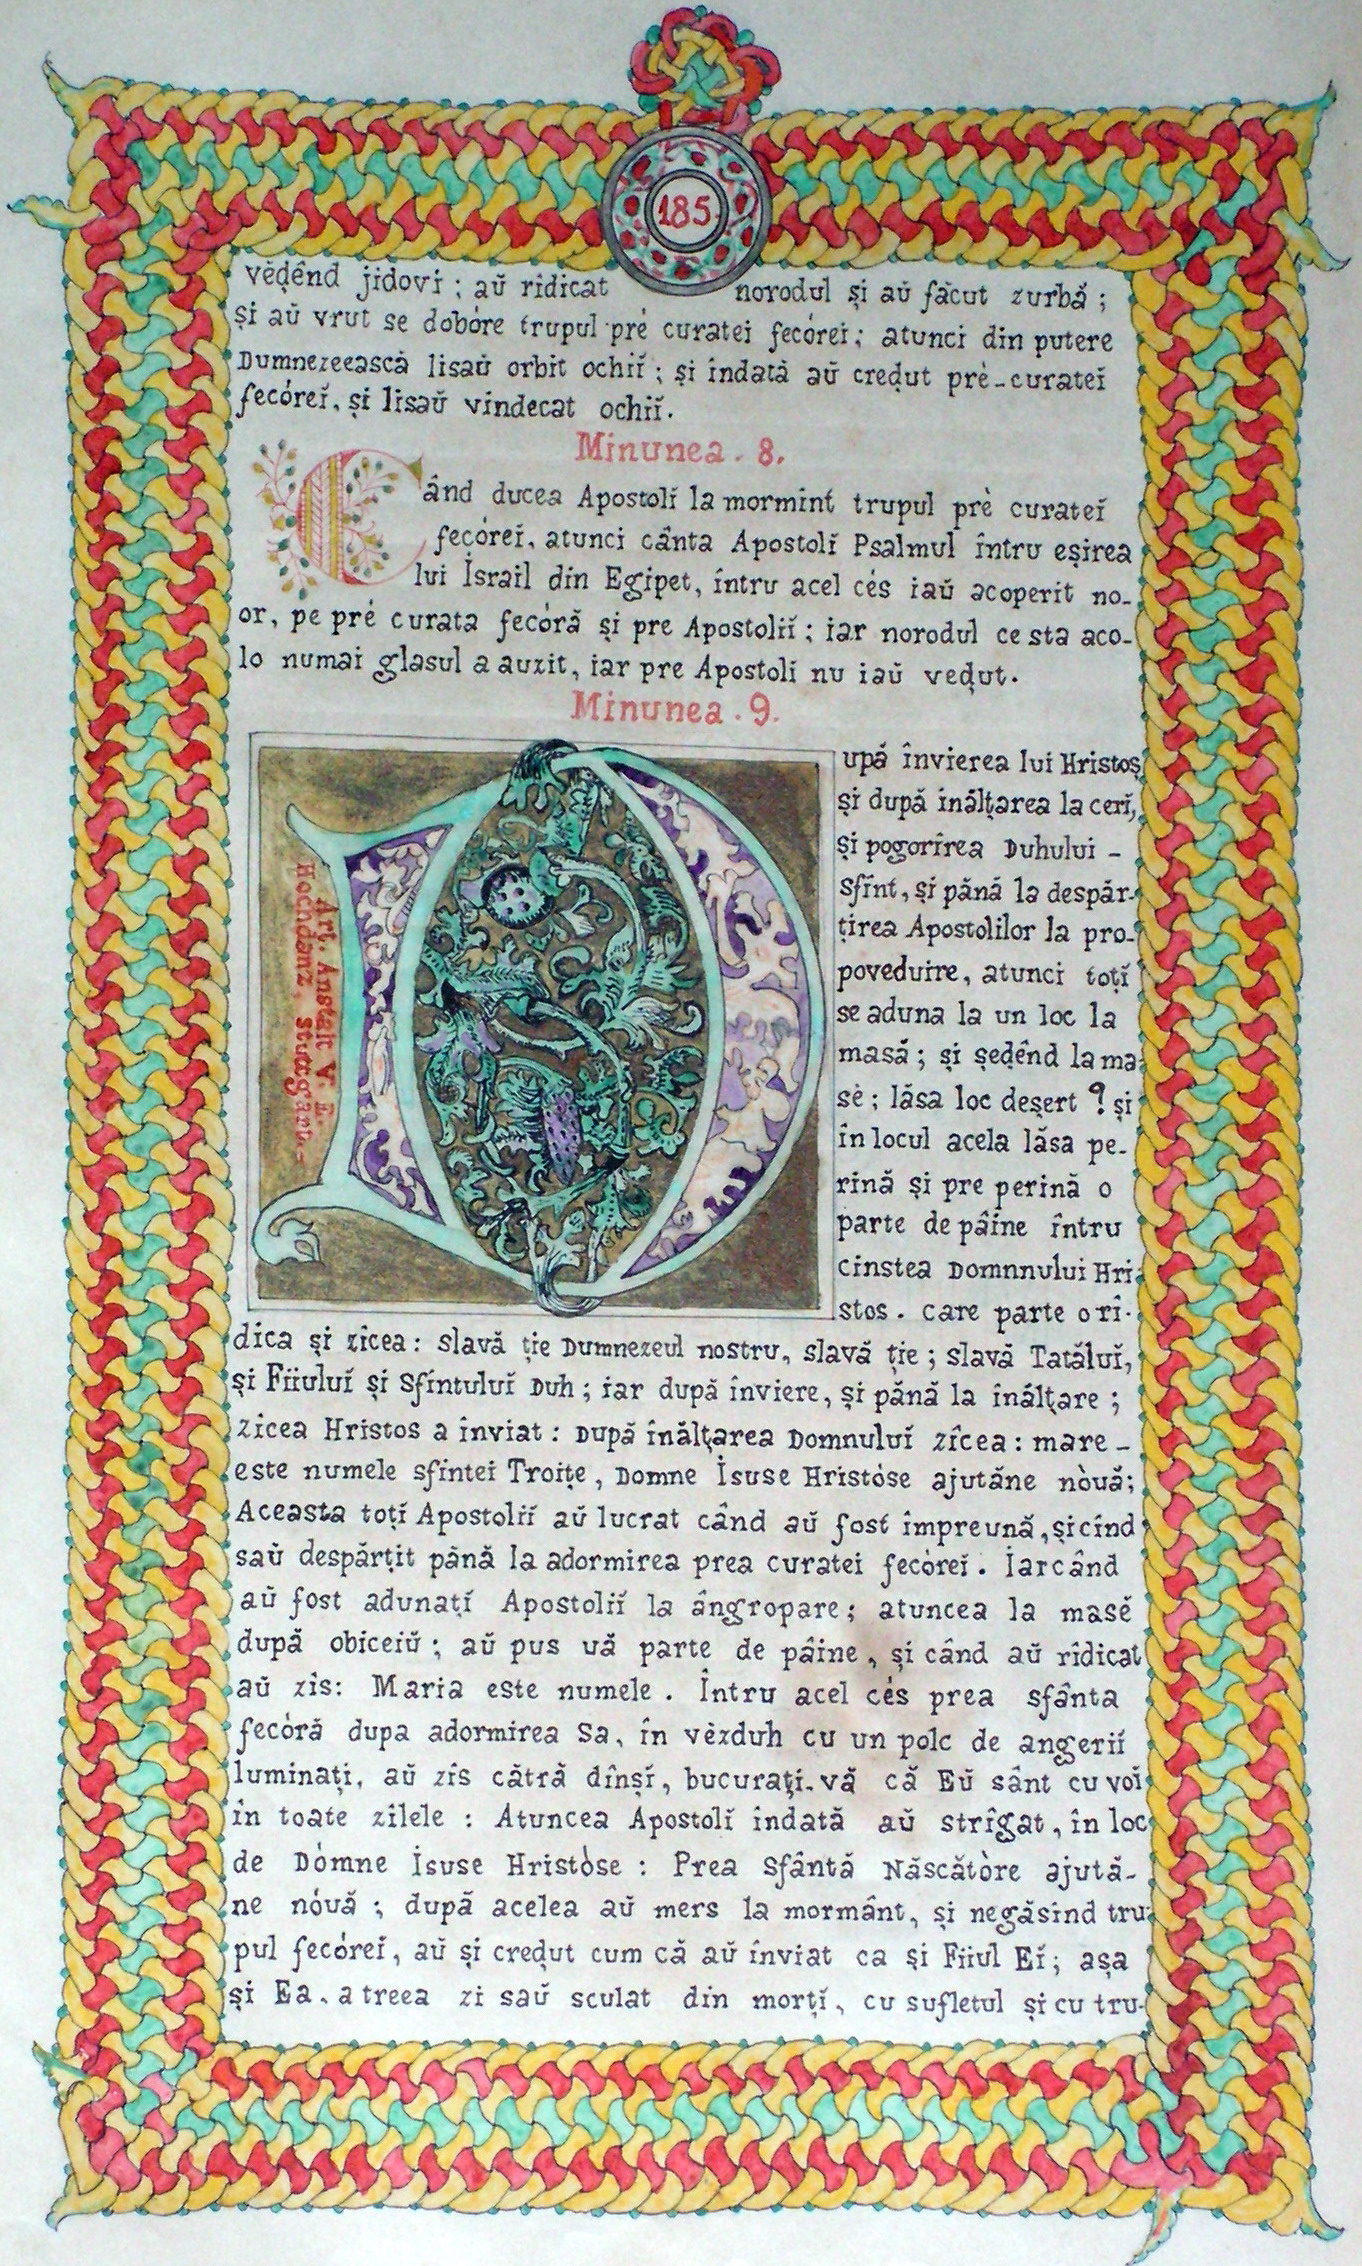 185.
vĕḑênd jidovi ; aŭ ridicat norodul și aŭ făcut zurbă ;
și aŭ vrut se dobóre trupul pré curatei fecórei ; atunci din putere
Dumnezeească lisaŭ orbit ochiĭ ; și îndată aŭ creḑut prè-curateĭ
fecóreĭ, și lisaŭ vindecat ochiĭ.
Minunea . 8.
Când ducea Apostolĭ la mormînt trupul prè curateĭ
fecóreĭ, atunci cânta Apostolĭ Psalmul întru eșirea
lui Israil din Egipet, întru acel cés iaŭ acoperit no-
or, pe pré curata fecóră și pre Apostoliĭ ; iar norodul ce sta aco-
lo numai glasul a auzit, iar pre Apostolĭ nu iaŭ veḑut.
Minunea . 9.
Art. Anstalt V. E.
Hochdanz, Stuttgart.
După învierea lui Hristos
și după înălțarea la cerĭ,
și pogorîrea Duhului -
Sfînt, și până la despăr-
țirea Apostolilor la pro-
poveduire, atunci toțĭ
se aduna la un loc la
masă ; și ședênd la ma-
sè ; lăsa loc deșert ? și
în locul acela lăsa pe-
rină și pre perină o
parte de pâine întru
cinstea Domnnului Hri-
stos . care parte o ri-
dica și zîcea : slavă ție Dumnezeul nostru, slavă ție ; slavă Tatăluĭ,
și Fiiuluĭ și Sfîntuluĭ Duh ; iar după înviere, și până la înălțare ;
zîcea Hristos a înviat : După înălțarea Domnuluĭ zîcea : mare -
este numele sfintei Troițe, Domne Isuse Hristóse ajutăne nòuă ;
Aceasta toțĭ Apostoliĭ aŭ lucrat când aŭ fost împreună, și cînd
saŭ despărțit până la adormirea prea curatei fecòreĭ . Iar când
aŭ fost adunațĭ Apostoliĭ la ângropare ; atuncea la masé
după obiceiŭ ; aŭ pus uă parte de pâine , și când aŭ rîdicat
aŭ zis: Maria este numele . Întru acel cés prea sfânta
fecòră dupa adormirea Sa, în vèzduh cu un polc de angeriĭ
luminați, aŭ zîs cătră dînșĭ, bucurați-vă că Eŭ sânt cu voĭ
în toate zilele : Atuncea Apostolĭ îndată aŭ strîgat, în loc
de Dómne Isuse Hristòse : Prea Sfântă Născătòre ajută-
ne nóuă ; după acelea aŭ mers la mormânt, și negăsind tru-
pul fecóreĭ, aŭ și creḑut cum că aŭ înviat ca și Fiiul Eĭ ; așa
și Ea, a treea zi saŭ sculat din morțĭ, cu sufletul și cu tru-